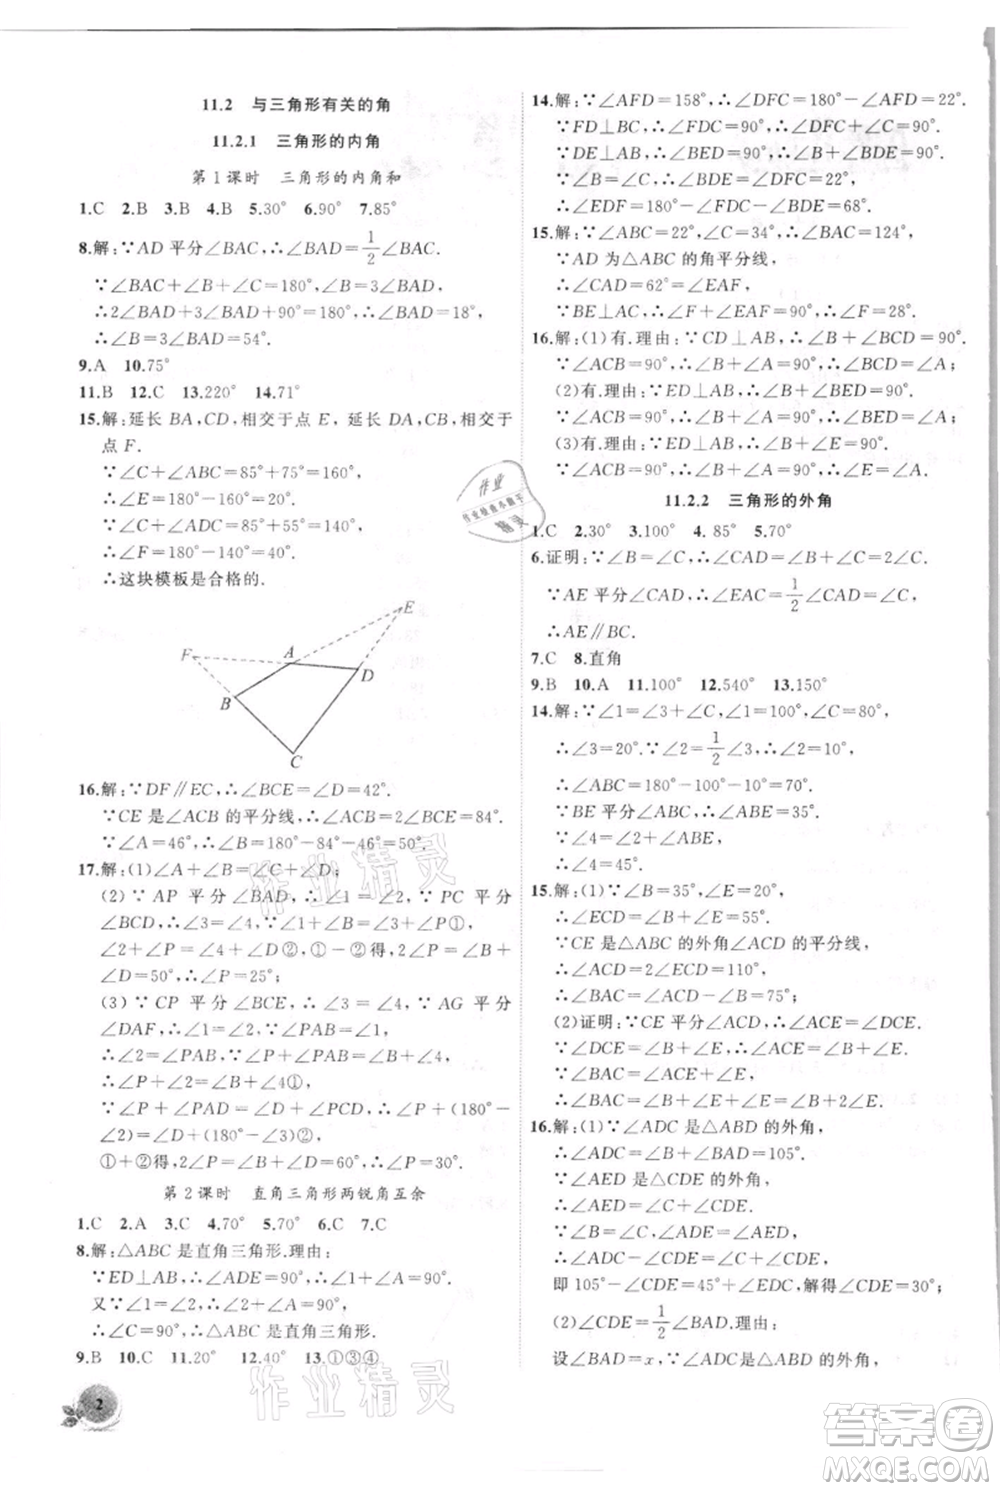 11.2 与三角形有关的角
11.2.1 三角形的内角
第1课时 三角形的内角和
1.C 2.B 3.B 4.B 5.30° 6.90° 7.85°
8.解:∵AD平分∠BAC,∴∠BAD=1/2∠BAC.
∵∠BAC+∠B+∠C=180°,∠C=90°,
∴2∠BAD+3∠BAD+90°=180°,∴∠BAD=18°,
∴∠B=3∠BAD=54°.
9.A 10.75°
11.B 12.C 13.220° 14.71°
15.解:延长BA,CD,相交于点E,延长DA,CB,相交于
点F.
∵∠C+∠ABC=85°+75°=160°,
∴∠E=180°-160°=20°.
∵∠C+∠ADC=85°+80°=165°,
∴∠F=180°-165°=15°.
∴这块模板是合格的.
E
F
A
D
B
C
16.解:∵DF∥EC,∴∠BCE=∠D=42°.
∵CE是∠ACB的平分线,∴∠ACB=2∠BCE=84°.
∵∠A=46°,∴∠B=180°-84°-46°=50°.
17.解:(1)∠A+∠B=∠C+∠D;
(2)∵AP平分∠BAD,∴∠1=∠2,∵PC平分
∠BCD,∴∠3=∠4,∵∠1+∠B=∠3+∠P①,
∠2+∠P=∠4+∠D②,①-②得,2∠P=∠B+
∠D=50°,∴∠P=25°;
(3)∵CP平分∠BCE,∴∠3=∠4,∵AG平分
∠DAF,∴∠1=∠2,∵∠PAB=∠1,
∴∠2=∠PAB,∵∠P+∠PAB=∠B+∠4,
∴∠P+∠2=∠B+∠4①,
∵∠P+∠PAD=∠D+∠PCD,∴∠P+(180°-
∠2)=∠D+(180°-∠4)②,
①+②得,2∠P=∠B+∠D=60°,∴∠P=30°.
第2课时 直角三角形两锐角互余
1.C 2.A 3.C 4.70° 5.70° 6.C 7.C
8.解:△ABC是直角三角形.理由:
∵ED⊥AB,∴∠ADE=90°,∴∠1+∠A=90°,
又∵∠1=∠2,∴∠2+∠A=90°,
∴∠C=90°,∴△ABC是直角三角形.
9.B 10.C 11.20° 12.40° 13.①③④
2
14.解:∵∠AFD=158°,∴∠DFC=180°-∠AFD=22°.
∵FD⊥BC,∴∠FDC=90°,∴∠DFC+∠C=90°.
∵DE⊥AB,∴∠BED=90°,∴∠B+∠BDE=90°.
∵∠B=∠C,∴∠BDE=∠DFC=22°,
∴∠EDF=180°-∠FDC-∠BDE=68°.
15.解:∵∠ABC=22°,∠C=34°,∴∠BAC=124°,
∵AD为△ABC的角平分线,
∴∠CAD=62°=∠EAF,
∵BF⊥AE,∴∠F+∠EAF=90°,∴∠F=28°.
16.解:(1)有.理由:∵CD⊥AB,∴∠B+∠BCD=90°.
∵∠ACB=90°,∴∠B+∠A=90°,∴∠BCD=∠A;
(2)有.理由:∵ED⊥AB,∴∠B+∠BED=90°,
∵∠ACB=90°,∴∠B+∠A=90°,∴∠BED=∠A;
(3)有.理由:∵ED⊥AB,∴∠B+∠E=90°,
∵∠ACB=90°,∴∠B+∠A=90°,∴∠E=∠A.
11.2.2 三角形的外角
1.C 2.30° 3.100° 4.85° 5.70°
6.证明:∵∠B=∠C,∴∠CAD=∠B+∠C=2∠C.
∵AE平分∠CAD,∴∠EAC=1/2∠CAD=∠C,
∴AE∥BC.
7.C 8.直角
9.B 10.A 11.100° 12.540° 13.150°
14.解:∵∠1=∠3+∠C,∠1=100°,∠C=80°,
∴∠3=20°.∵∠2=1/2∠3,∴∠2=10°,
∴∠ABC=180°-100°-10°=70°.
∵BE平分∠ABC,∴∠ABE=35°.
∵∠4=∠2+∠ABE,
∴∠4=45°.
15.解:(1)∵∠B=35°,∠E=20°,
∴∠ECD=∠B+∠E=55°.
∵CE是△ABC的外角∠ACD的平分线,
∴∠ACD=2∠ECD=110°,
∴∠BAC=∠ACD-∠B=75°;
(2)证明:∵CE平分∠ACD,∴∠ACE=∠DCE.
∵∠DCE=∠B+∠E,∴∠ACE=∠B+∠E.
∵∠BAC=∠ACE+∠E,
∴∠BAC=∠B+∠E+∠E=∠B+2∠E.
16.解:(1)∵∠ADC是△ABD的外角,
∴∠ADC=∠B+∠BAD=105°.
∵∠AED是△CDE的外角,
∴∠AED=∠C+∠CDE.
∵∠B=∠C,∠ADE=∠AED,
∴∠ADC-∠CDE=∠C+∠CDE,
即105°-∠CDE=45°+∠EDC,解得∠CDE=30°;
(2)∠CDE=1/2∠BAD.理由:
设∠BAD=x,∵∠ADC是△ABD的外角,
作业精灵
作业精灵
答案圈
MXQE.COM